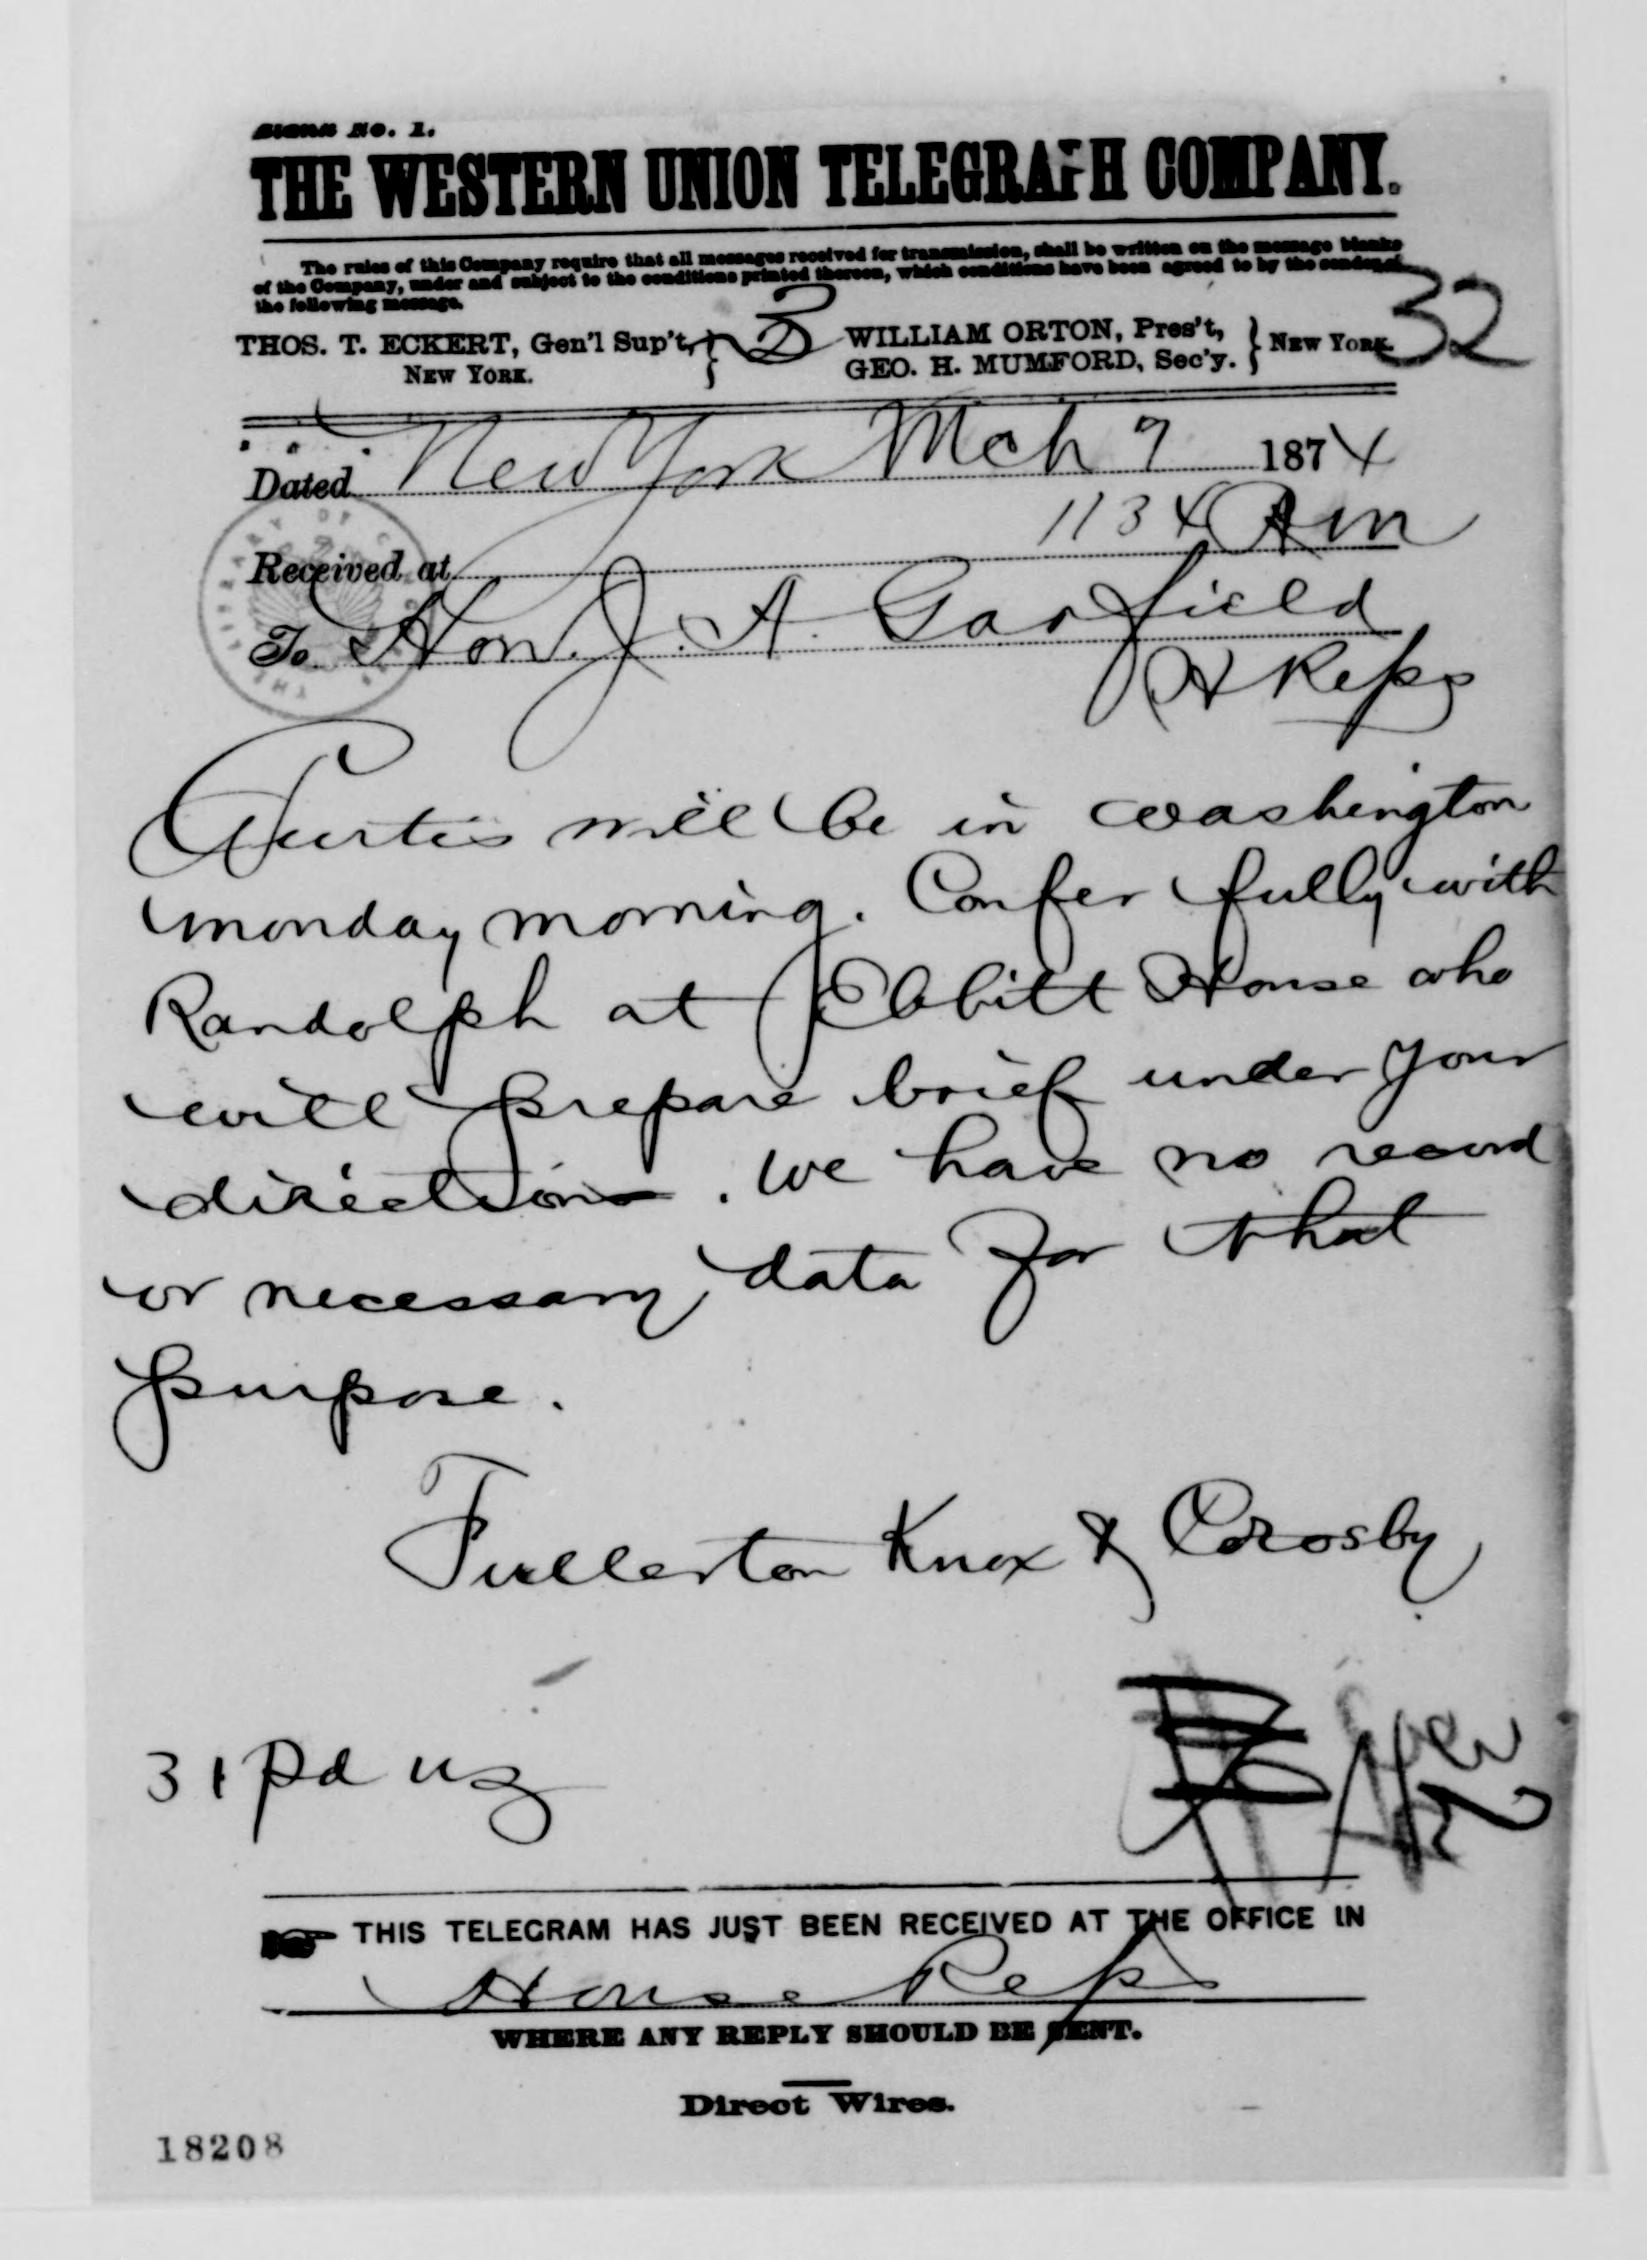 Blank No. 1.
THE WESTERN UNION TELEGRAPH COMPANY.
The rules of this Company require that all messages received for transmission, shall be written on the message blanks
of the Company, under and subject to the conditions printed thereon, which conditions have been agreed to by the sender of
the following message.
THOS. T. ECKERT, Gen'l Sup't, } WILLIAM ORTON, Pres't, } NEW YORK. 32
NEW YORK. GEO. H. MUMFORD, Sec'y.
Dated New York Mch 7 1874
1134 Am
Received at
To Hon. J. A. Garfield
H Reps
Curtis will be in Washington
monday morning. Confer fully with
Randolph at Ebbitt House who
will prepare brief under your
direction. We have no record
or necessary data for that
purpose.
Fullerton Knox & Crosby
31 pd
THIS TELEGRAM HAS JUST BEEN RECEIVED AT THE OFFICE IN
House Reps
WHERE ANY REPLY SHOULD BE SENT.
Direct Wires.
18208